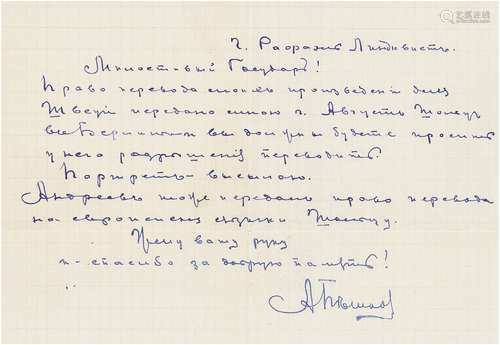 г. Рафаэль Линдквистъ.
Милостивый Государь!
Право перевода моихъ произведеній для
Швеціи передано мною г. Августъ Шольцъ
въ Берлинѣ и вы должны будете просить
у него разрѣшенія переводить.
Портретъ – высылаю.
Андреевъ тоже передалъ право перевода
на европейскіе языки Шольцу.
Жму вашу руку
и – спасибо за добрую память!
АПѣшков